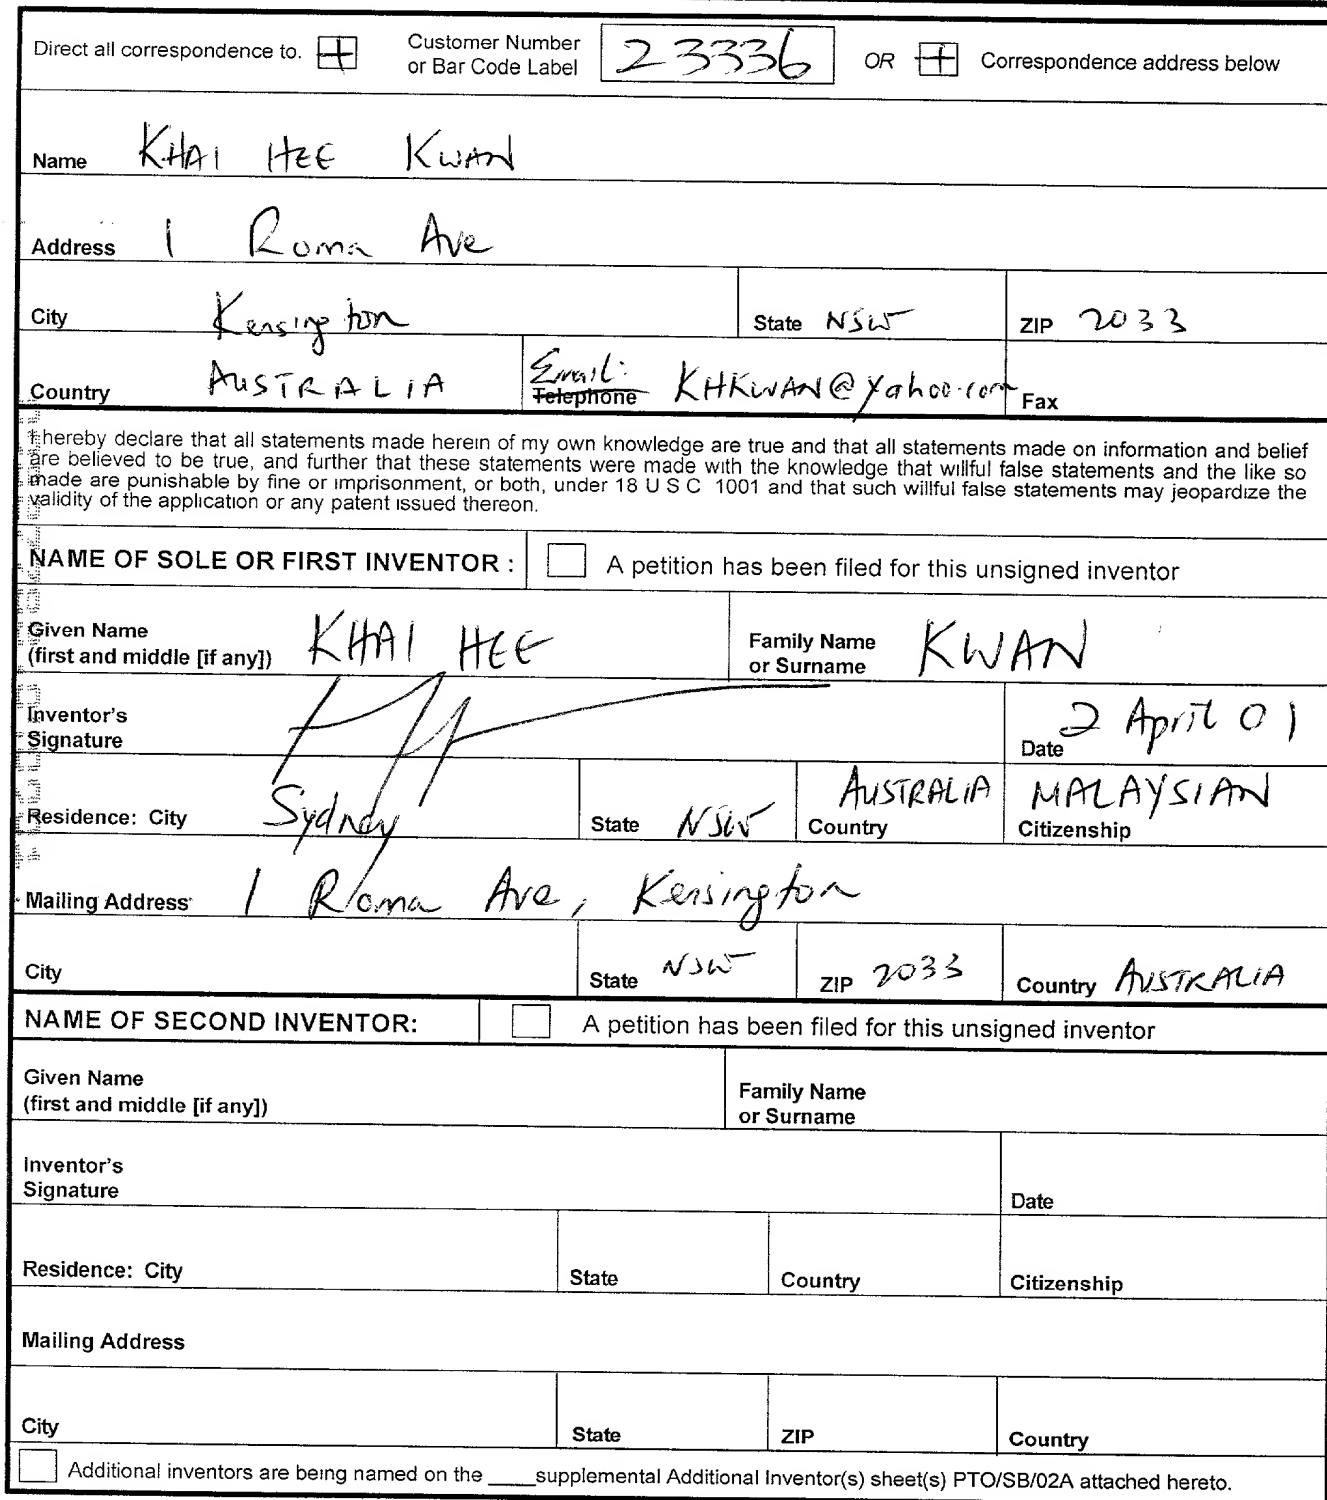 Direct all correspondence to. Customer Number or Bar Code Label 23336 OR Correspondence address below
Name KHAI HEE KWAN
Address 1 Roma Ave
City Kensington State NSW ZIP 2033
Country AUSTRALIA Email: Telephone KHKWAN@yahoo.com Fax
I hereby declare that all statements made herein of my own knowledge are true and that all statements made on information and belief
are believed to be true, and further that these statements were made with the knowledge that willful false statements and the like so
made are punishable by fine or imprisonment, or both, under 18 U S C 1001 and that such willful false statements may jeopardize the
validity of the application or any patent issued thereon.
NAME OF SOLE OR FIRST INVENTOR : A petition has been filed for this unsigned inventor
Given Name (first and middle [if any]) KHAI HEE Family Name or Surname KWAN
Inventor's Signature Date 2 April 01
Residence: City Sydney State NSW Country AUSTRALIA Citizenship MALAYSIAN
Mailing Address 1 Roma Ave, Kensington
City State NSW ZIP 2033 Country AUSTRALIA
NAME OF SECOND INVENTOR: A petition has been filed for this unsigned inventor
Given Name (first and middle [if any]) Family Name or Surname
Inventor's Signature Date
Residence: City State Country Citizenship
Mailing Address
City State ZIP Country
Additional inventors are being named on the ____supplemental Additional Inventor(s) sheet(s) PTO/SB/02A attached hereto.